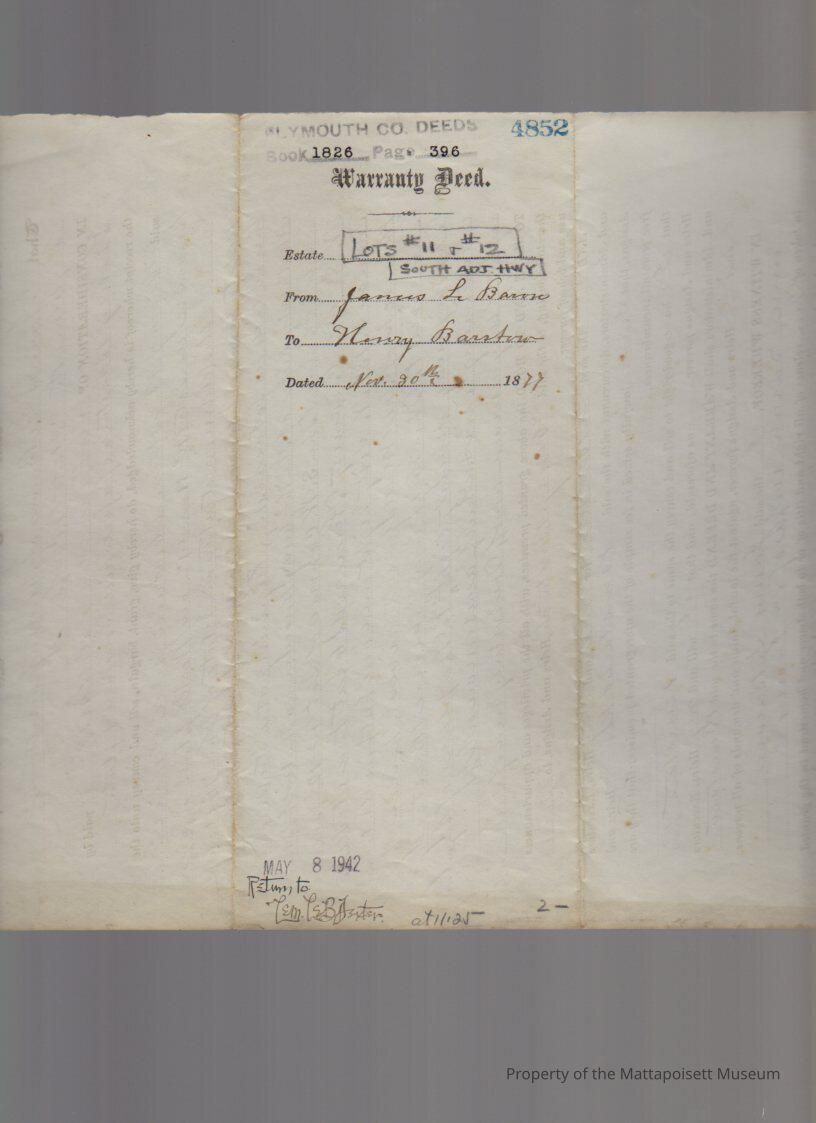 PLYMOUTH CO. DEEDS
4852
Book 1826 Page 396
Warranty Deed.
Estate LOTS #11 & #12
SOUTH ADJ. HWY
From James L. Baron
To Henry Barstow
Dated Nov. 30th 1877
MAY 8 1942
Return to
at 11:25
2-
Property of the Mattapoisett Museum